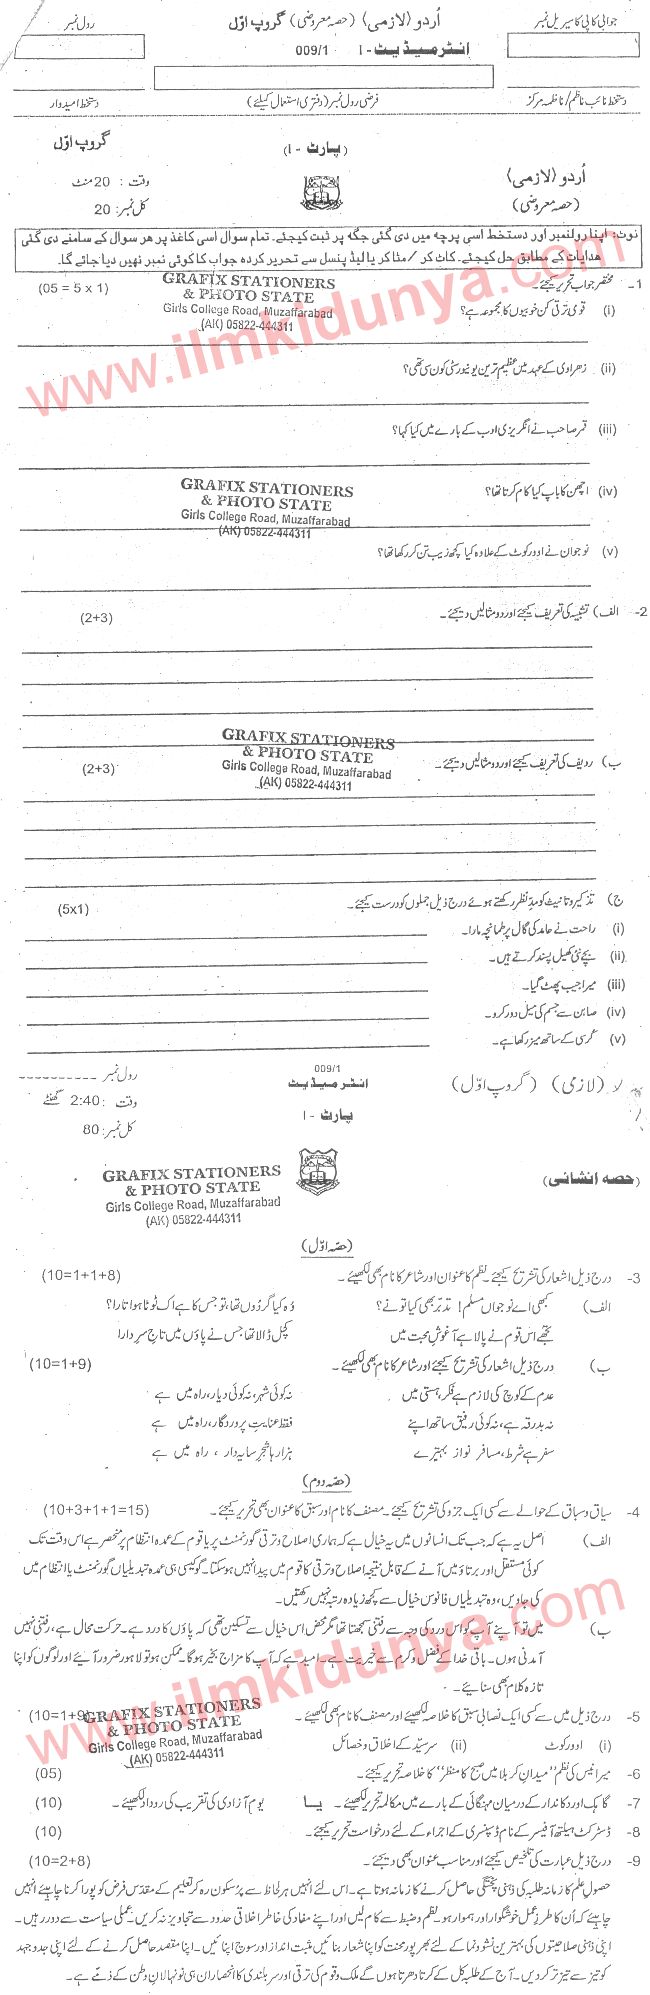 جوابی کاپی کا سیریل نمبر
اُردو (لازمی) (حصہ معروضی) گروپ اوّل
رول نمبر
انٹرمیڈیٹ - I 009/1
دستخط نائب ناظم / ناظمہ مرکز
فرضی رول نمبر (دفتری استعمال کیلئے)
دستخط امیدوار
(پارٹ - I)
گروپ اوّل
اُردو (لازمی)
وقت : 20 منٹ
(حصہ معروضی)
کل نمبر: 20
نوٹ: اپنا رولنمبر اور دستخط اسی پرچہ میں دی گئی جگہ پر ثبت کیجئے۔ تمام سوال اسی کاغذ پر ھر سوال کے سامنے دی گئی
ھدایات کے مطابق حل کیجئے۔ کاٹ کر / مٹا کر یا لیڈ پنسل سے تحریر کردہ جواب کا کوئی نمبر نھیں دیا جائے گا۔
1- مختصر جواب تحریر کیجئے۔ (05 = 5 x 1)
GRAFIX STATIONERS
& PHOTO STATE
Girls College Road, Muzaffarabad
(AK) 05822-444311
(i) قومی ترقی کن خوبیوں کا مجموعہ ہے؟
www.ilmkidunya.com
(ii) زھراوی کے عہد میں عظیم ترین یونیورسٹی کون سی تھی؟
(iii) قمر صاحب نے انگریزی ادب کے بارے میں کیا کہا؟
(iv) اچھن کا باپ کیا کام کرتا تھا؟
GRAFIX STATIONERS
& PHOTO STATE
Girls College Road, Muzaffarabad
(AK) 05822-444311
(v) نوجوان نے اوورکوٹ کے علاوہ کیا کچھ زیب تن کر رکھا تھا؟
2- الف) تشبیہ کی تعریف کیجئے اور دو مثالیں دیجئے۔ (2+3)
GRAFIX STATIONERS
& PHOTO STATE
Girls College Road, Muzaffarabad
(AK) 05822-444311
ب) ردیف کی تعریف کیجئے اور دو مثالیں دیجئے۔ (2+3)
ج) تذکیر و تانیث کو مدِ نظر رکھتے ہوئے درج ذیل جملوں کو درست کیجئے۔ (5x1)
(i) راحت نے حامد کی گال پر طمانچہ مارا۔
(ii) بچے نئی کھیل پسند کرتے ہیں۔
(iii) میرا جیب پھٹ گیا۔
(iv) صابن سے جسم کی میل دور کرو۔
(v) کرسی کے ساتھ میز رکھا ہے۔
(لازمی) (گروپ اوّل)
009/1
انٹرمیڈیٹ
رول نمبر ----------
پارٹ - I
وقت : 2:40 گھنٹے
کل نمبر: 80
(حصہ انشائی)
GRAFIX STATIONERS
& PHOTO STATE
Girls College Road, Muzaffarabad
(AK) 05822-444311
(حصّہ اوّل)
3- درج ذیل اشعار کی تشریح کیجئے۔ نظم کا عنوان اور شاعر کا نام بھی لکھیئے۔ (10=1+1+8)
الف) کبھی اے نوجواں مسلم! تدبّر بھی کیا تو نے؟ وُہ کیا گردُوں تھا، تو جس کا ہے اک ٹوٹا ہوا تارا؟
تجھے اس قوم نے پالا ہے آغوشِ محبت میں کچل ڈالا تھا جس نے پاؤں میں تاجِ سرِ دارا
ب) درج ذیل اشعار کی تشریح کیجئے اور شاعر کا نام بھی لکھیئے۔ (10=1+9)
عدم کے کوچ کی لازم ہے فکر، ہستی میں نہ کوئی شہر، نہ کوئی دیار، راہ میں ہے
نہ بدرقہ ہے، نہ کوئی رفیق ساتھ اپنے فقط عنایتِ پروردگار، راہ میں ہے
سفر ہے شرط، مسافر نواز بہتیرے ہزار ہا شجرِ سایہ دار ، راہ میں ہے
(حصّہ دوم)
4- سیاق و سباق کے حوالے سے کسی ایک جزو کی تشریح کیجئے۔ مصنف کا نام اور سبق کا عنوان بھی تحریر کیجئے۔ (10+3+1+1=15)
الف) اصل یہ ہے کہ جب تک انسانوں میں یہ خیال ہے کہ ہماری اصلاح و ترقی گورنمنٹ پر یا قوم کے عمدہ انتظام پر منحصر ہے اس وقت تک
کوئی مستقل اور برتاؤ میں آنے کے قابل نتیجہ اصلاح و ترقی کا قوم میں پیدا نہیں ہو سکتا۔ گو کیسی ہی عمدہ تبدیلیاں گورنمنٹ یا انتظام میں
کی جاویں، وہ تبدیلیاں فانوس خیال سے کچھ زیادہ رتبہ نہیں رکھتیں۔
ب) میں تو آپے آپ کو اس درد کی وجہ سے رفتنی سمجھتا تھا مگر محض اس خیال سے تسکین تھی کہ پاؤں کا درد ہے۔ حرکت محال ہے، رفتنی نہیں
آمدنی ہوں۔ باقی خدا کے فضل و کرم سے خیریت ہے۔ امید ہے کہ آپ کا مزاج بخیر ہوگا۔ ممکن ہو تو لاہور ضرور آیئے اور لوگوں کو اپنا
تازہ کلام بھی سنایئے۔
www.ilmkidunya.com
5- درج ذیل میں سے کسی ایک نصابی سبق کا خلاصہ لکھیئے اور مصنف کا نام بھی لکھیئے۔ (10=1+9)
GRAFIX STATIONERS
& PHOTO STATE
Girls College Road, Muzaffarabad
(AK) 05822-444311
(i) اوورکوٹ (ii) سرسیّد کے اخلاق و خصائل
6- میر انیس کی نظم "میدانِ کربلا میں صبح کا منظر" کا خلاصہ تحریر کیجئے۔ (05)
7- گاہک اور دکاندار کے درمیان مہنگائی کے بارے میں مکالمہ تحریر لکھیئے۔ یا یومِ آزادی کی تقریب کی روداد لکھیئے۔ (10)
8- ڈسٹرکٹ ہیلتھ آفیسر کے نام ڈسپنسری کے اجراء کے لئے درخواست تحریر کیجئے۔ (10)
9- درج ذیل عبارت کی تلخیص کیجئے اور مناسب عنوان بھی دیجئے۔ (10=2+8)
حصولِ علم کا زمانہ طلبہ کی ذہنی پختگی حاصل کرنے کا زمانہ ہوتا ہے۔ اس لئے انہیں ہر لحاظ سے پرسکون رہ کر تعلیم کے مقدس فرض کو پورا کرنا چاہئے انہیں
چاہئے کہ اُن کا طرزِ عمل خوشگوار اور ہموار ہو۔ نظم و ضبط سے کام لیں اور اپنے مفاد کی خاطر اخلاقی حدود سے تجاوز نہ کریں۔ عملی سیاست سے دور رہیں۔
اپنی ذہنی صلاحیتوں کی بہترین نشوونما کے لئے بھرپور محنت کو اپنا شعار بنائیں مثبت انداز اور سوچ اپنائیں۔ اپنا مقصد حاصل کرنے کے لئے اپنی جدوجہد
کو تیز سے تیز تر کر دیں۔ آج کے طلبہ کل کے کرتا دھرتا ہوں گے ملک و قوم کی ترقی اور سربلندی کا انحصار ان ہی نونہالانِ وطن کے ذمّے ہے۔